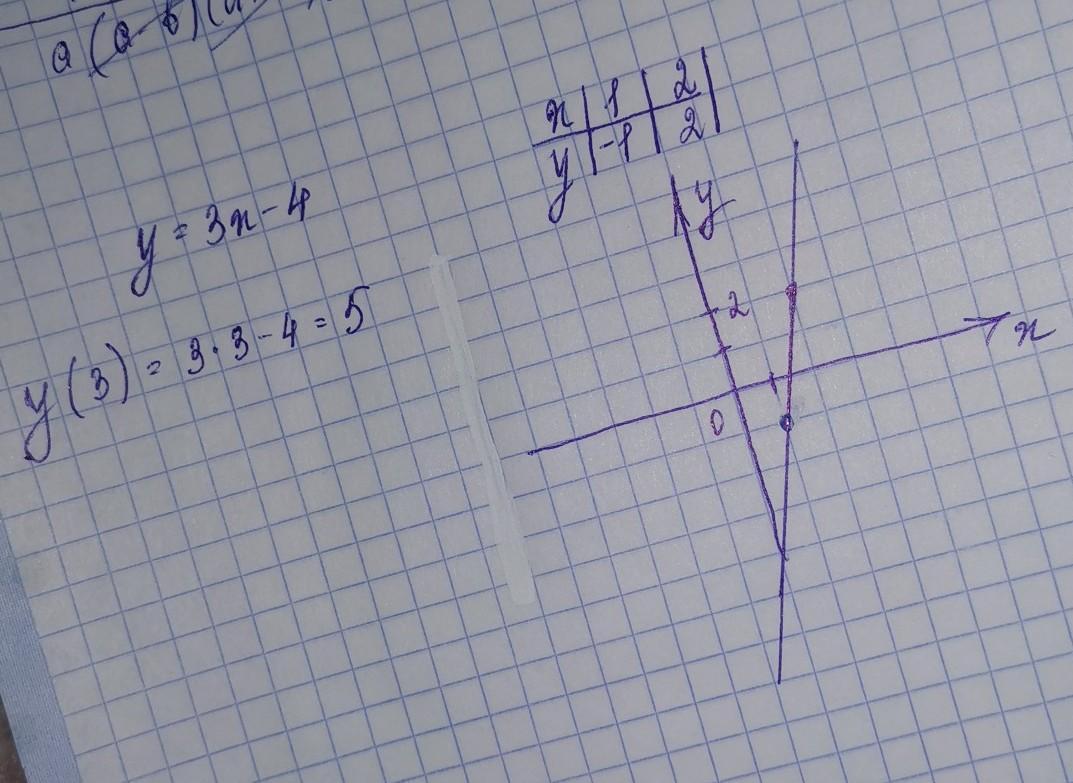 a(a-b)(a
x | 1 | 2 |
y | -1 | 2 |
y = 3x - 4
y(3) = 3·3 - 4 = 5
y
2
x
0